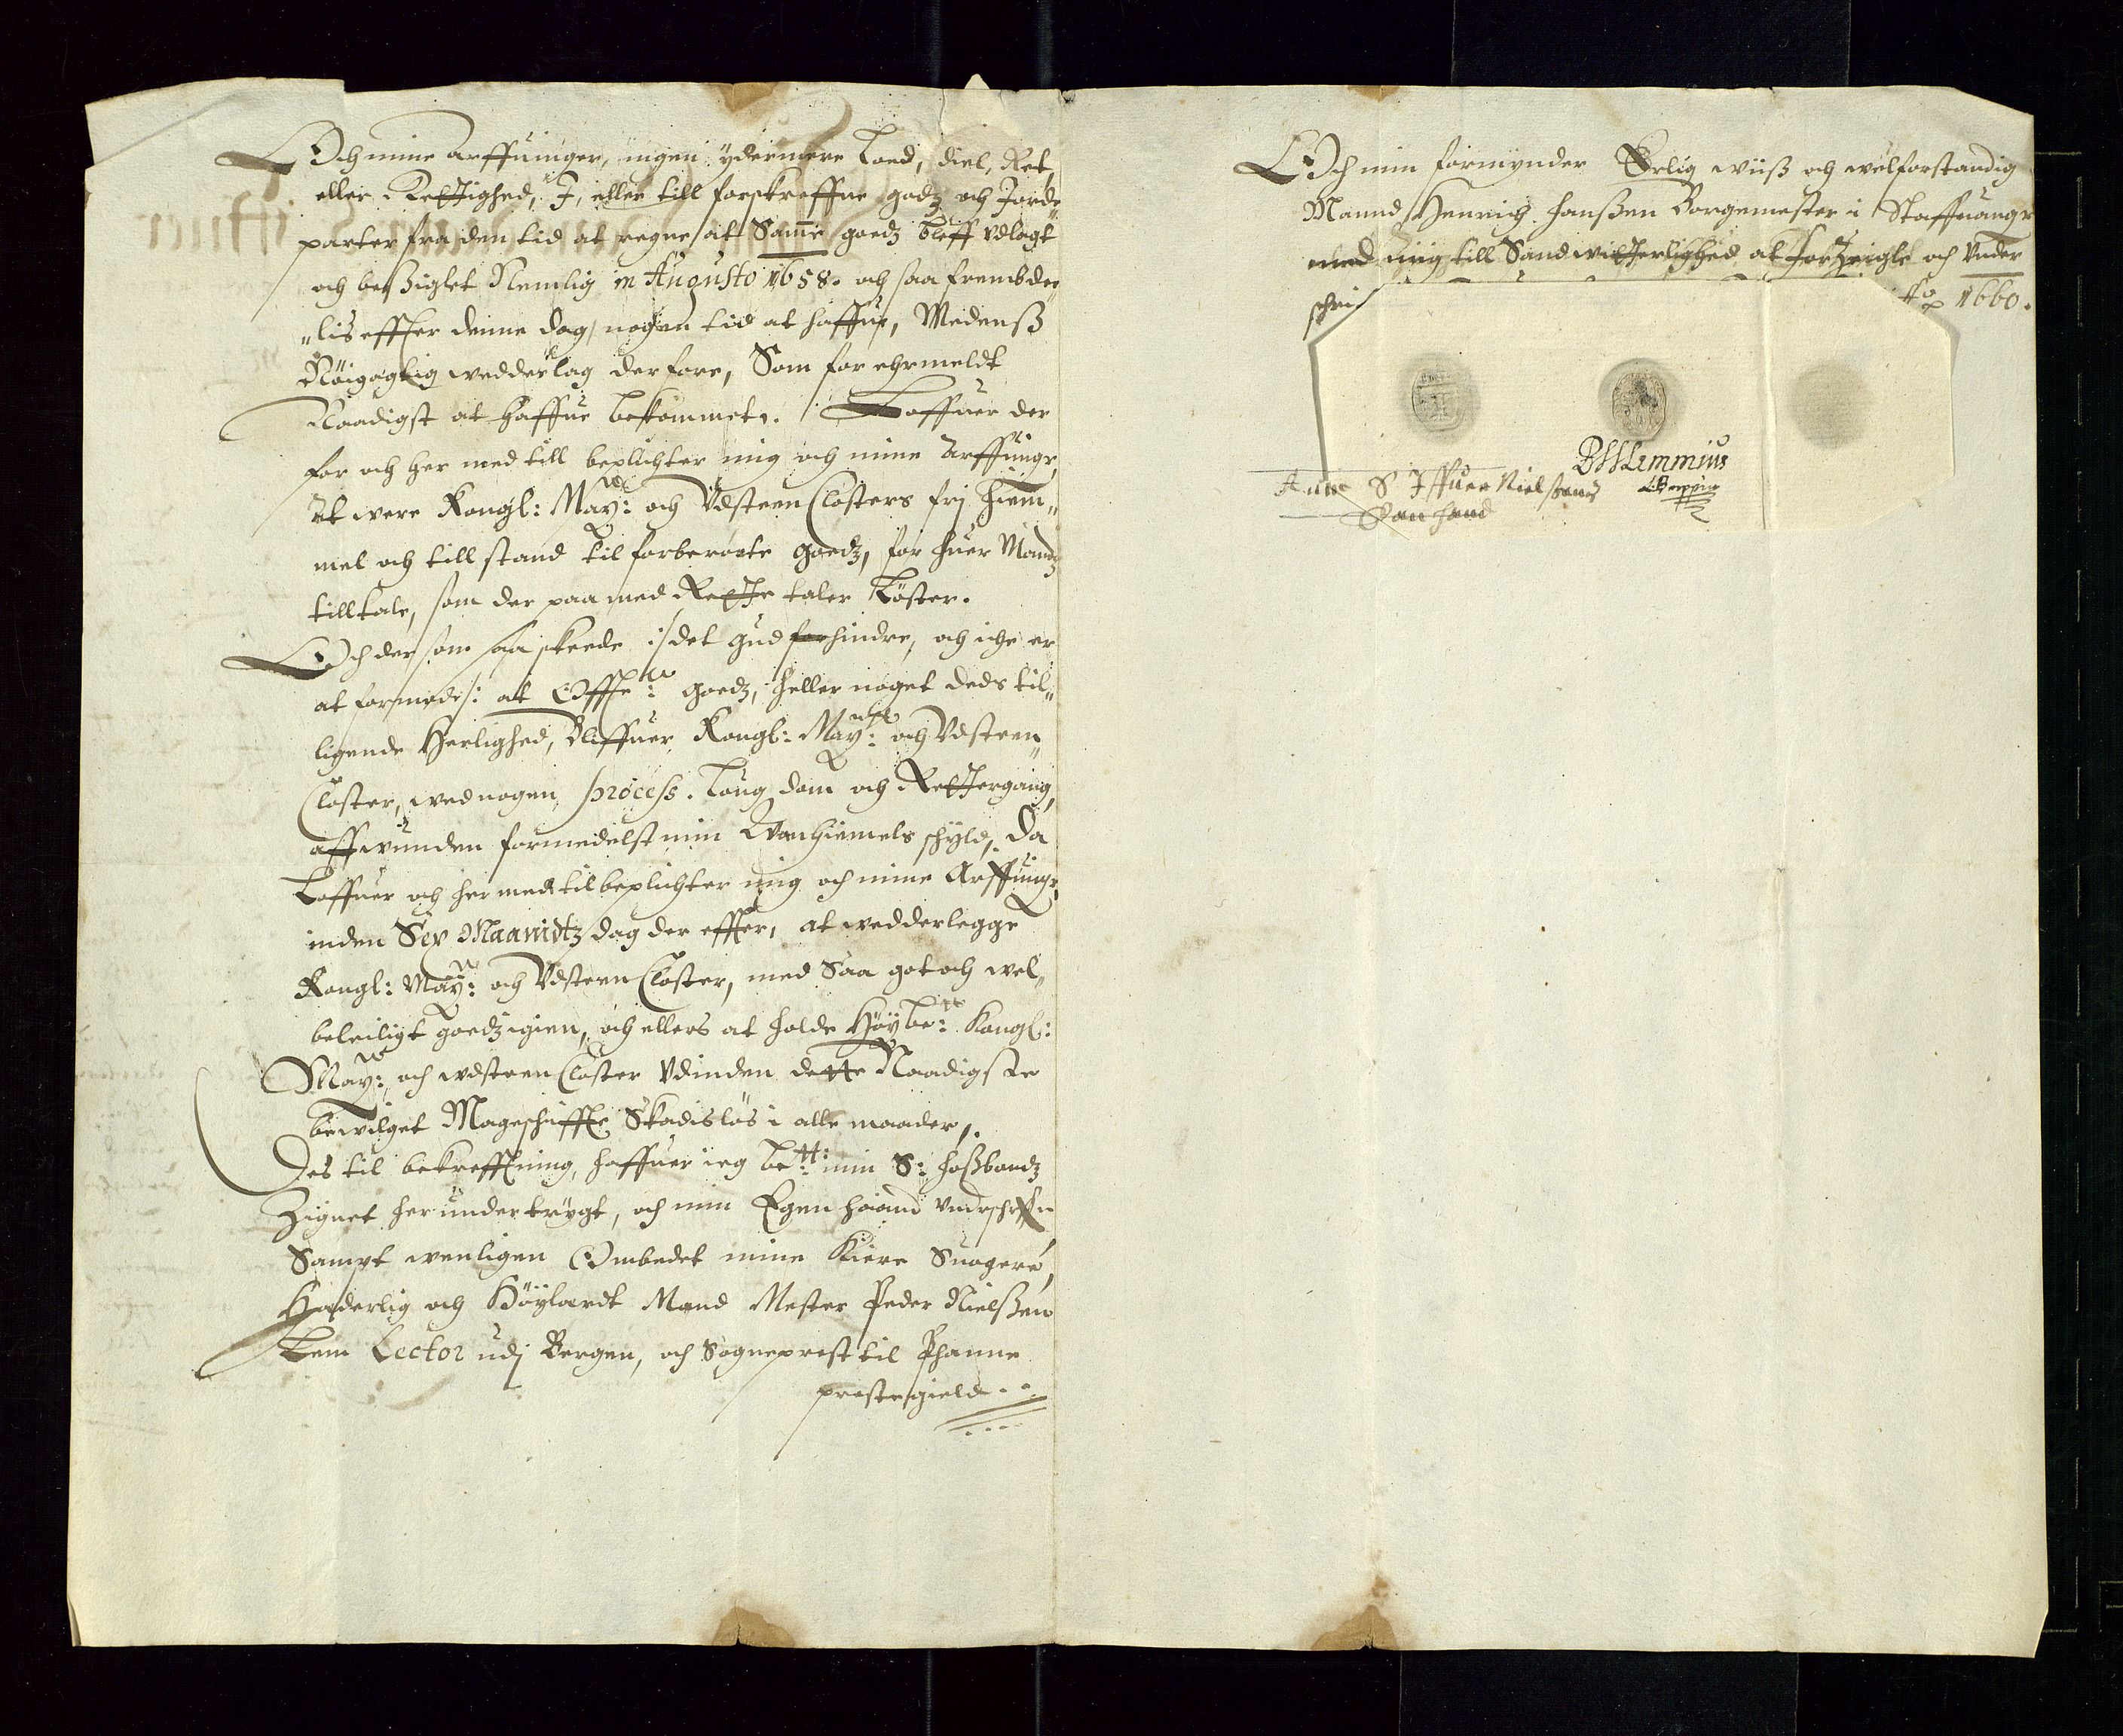 Och mine Arffuinger, ingen ydermere Loed, diel, Ret,
eller Rettighed, I, eller till forskreffne godz och Jorde¬
parter fra den tid at regne at Samme goedz bleff vdlagt
och beßiglet Nemlig in Augusto 1658. och saa frembde¬
lis effter denne dag, nogen tid at haffue, Medenß
Nöigagtig wedderlag derfore, Som for ehrmeldt
Naadigst at haffue bekommet. Loffuer der
for och her med till beplichter mig och mine Arffuinger,
At were Kongl: May: och Vdsteen Closters frj hiem¬
mel och till stand til forberörte goedz, for huer Mandz
tilltale, som der paa med Rette taler köster.
Och der som saa skeede :/det gud forhindre, och iche er
at formode/: at Offte: goedz, heller noget deds til¬
ligende Herlighed, Bliffuer Kongl: May: och Vdsteen
Closter, wed nogen process. Laug dom och Rettergang,
affwunden formedelst min Wanhiemels schyld, Da
Loffuer och her med til beplichter mig och mine Arffuinger,
inden Sex Maanidtz dag der effter, at wedderlegge
Kongl: May: och Vdsteen Closter, med Saa got och wel
beleiligt goedz igien, och ellers at holde Höybe: Kongl:
May: och wdsteen Closter vdinden dette Naadigste
bewilget Mageschiffte Skadislös i alle maader,.
Des til bekrefftning, haffuer ieg be:tt min S: Hoßbondz
Zignet her under trÿgt, och min Egen haand underschreffuen
Sampt wenligen Ombedet mine Kiere Suogere,
Hæderlig och Höylærdt Mand Mester Peder Nielßen
Lem Lector udj Bergen, och Sogneprest til Phanne
prestegield..
Och min formynder Erlig wiiß och welforstandig
Mannd Henrich Hanßen Borgemester i Staffuanger
med mig till Sandwitterlighed at forZeigle och Under
schri
Ao 1660.
PNLemmius
Anne S Iffuer Nielsens
Egen hand